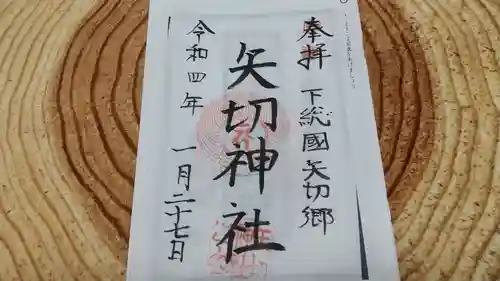 奉拝 下総國矢切郷
矢切神社
令和四年 一月二十七日